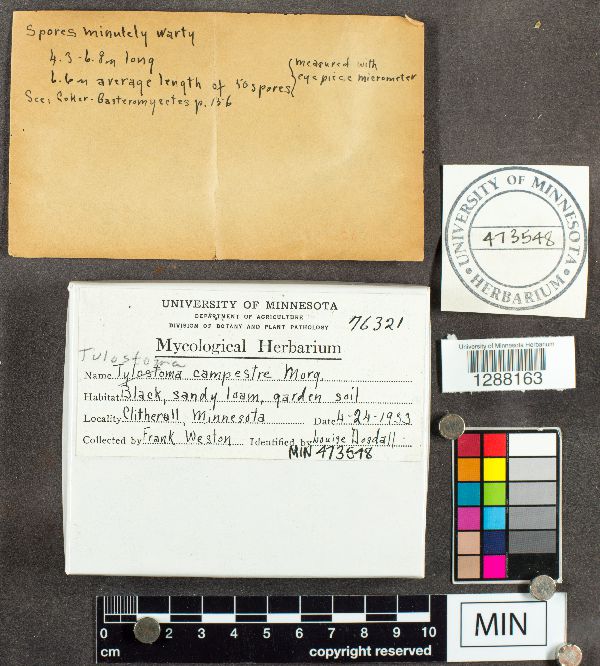 Spores minutely warty
4.3-6.8µ long
6.6µ average length of 50 spores
measured with
eyepiece micrometer
See: Coker-Gasteromycetes p. 156
UNIVERSITY OF MINNESOTA
HERBARIUM
473548
UNIVERSITY OF MINNESOTA
DEPARTMENT OF AGRICULTURE
DIVISION OF BOTANY AND PLANT PATHOLOGY
76321
Mycological Herbarium
Tulostoma
Name Tylostoma campestre Morg.
Habitat Black, sandy loam, garden soil
Locality Clitherall, Minnesota Date 4-24-1933
Collected by Frank Weston Identified by Louise Dosdall
MIN 473548
University of Minnesota Herbarium
1288163
0 2 3 4 5 6 7 8 9 10
cm copyright reserved
MIN